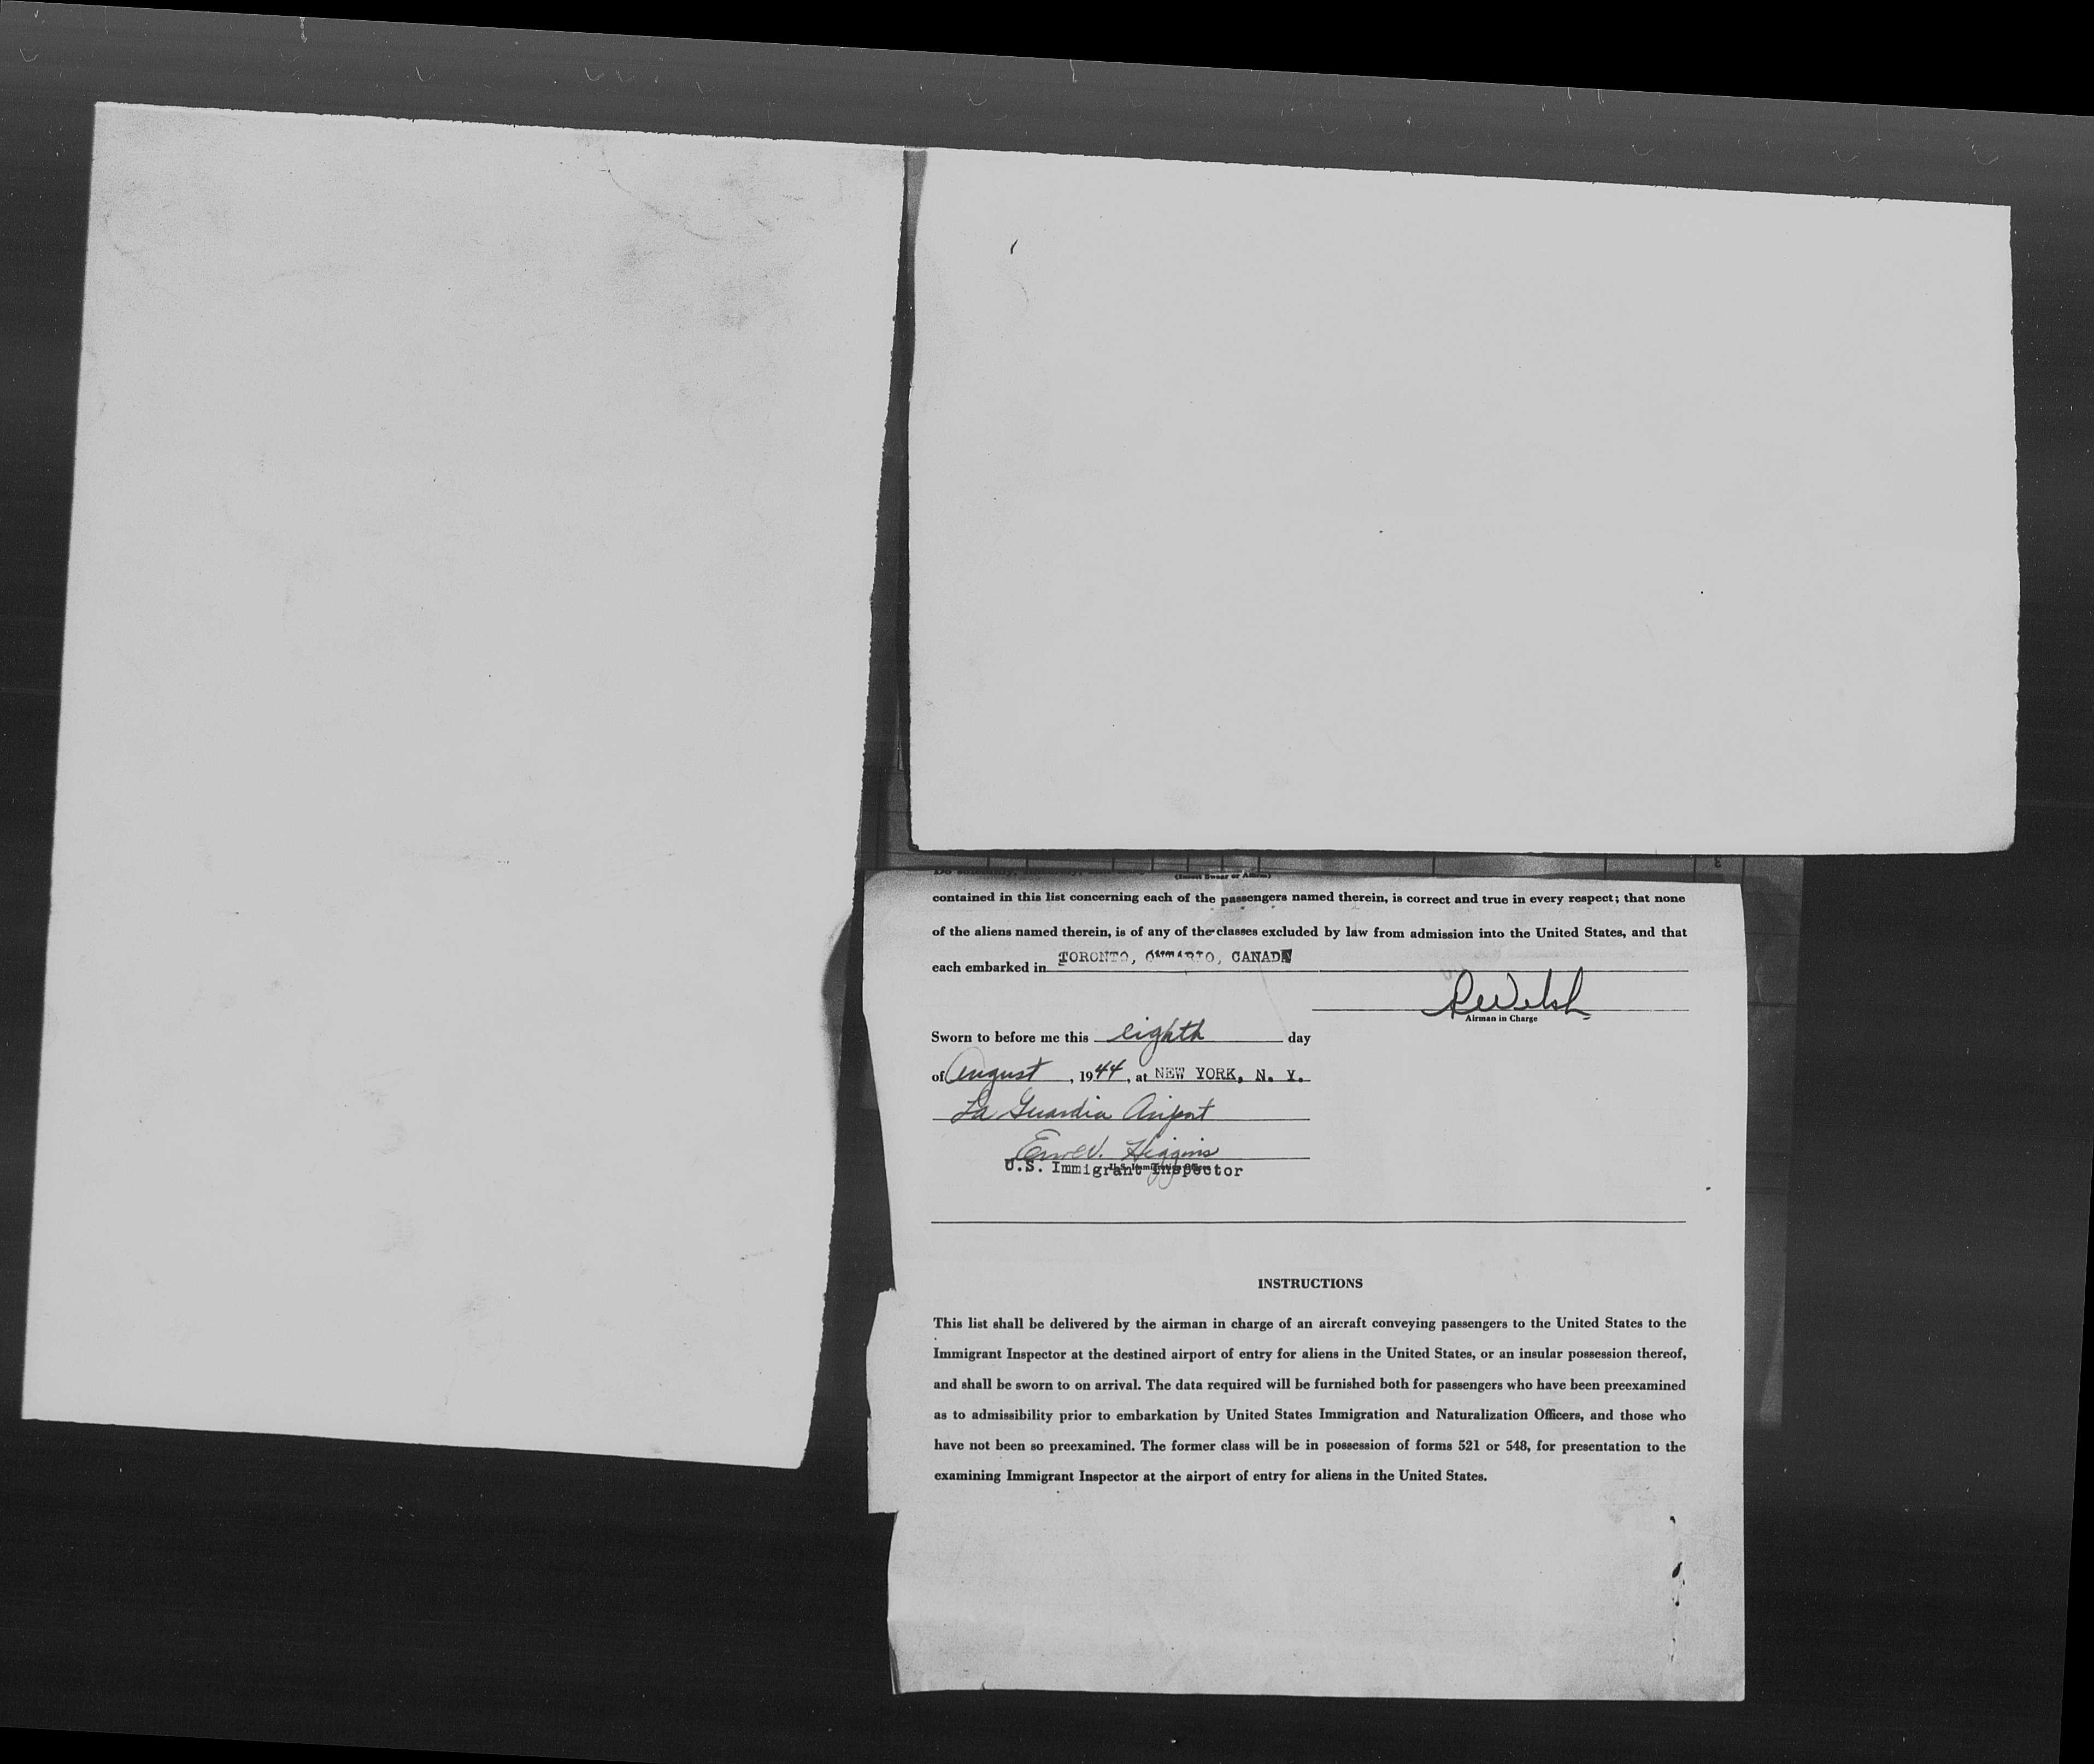 (Insert Swear or Affirm)
contained in this list concerning each of the passengers named therein, is correct and true in every respect; that none
of the aliens named therein, is of any of the classes excluded by law from admission into the United States, and that
each embarked in TORONTO, ONTARIO, CANADA
Airman in Charge
Sworn to before me this eighth day
of August, 1944, at NEW YORK, N. Y.
La Guardia Airport
Higgins
U.S. Immigrant Inspector
INSTRUCTIONS
This list shall be delivered by the airman in charge of an aircraft conveying passengers to the United States to the
Immigrant Inspector at the destined airport of entry for aliens in the United States, or an insular possession thereof,
and shall be sworn to on arrival. The data required will be furnished both for passengers who have been preexamined
as to admissibility prior to embarkation by United States Immigration and Naturalization Officers, and those who
have not been so preexamined. The former class will be in possession of forms 521 or 548, for presentation to the
examining Immigrant Inspector at the airport of entry for aliens in the United States.